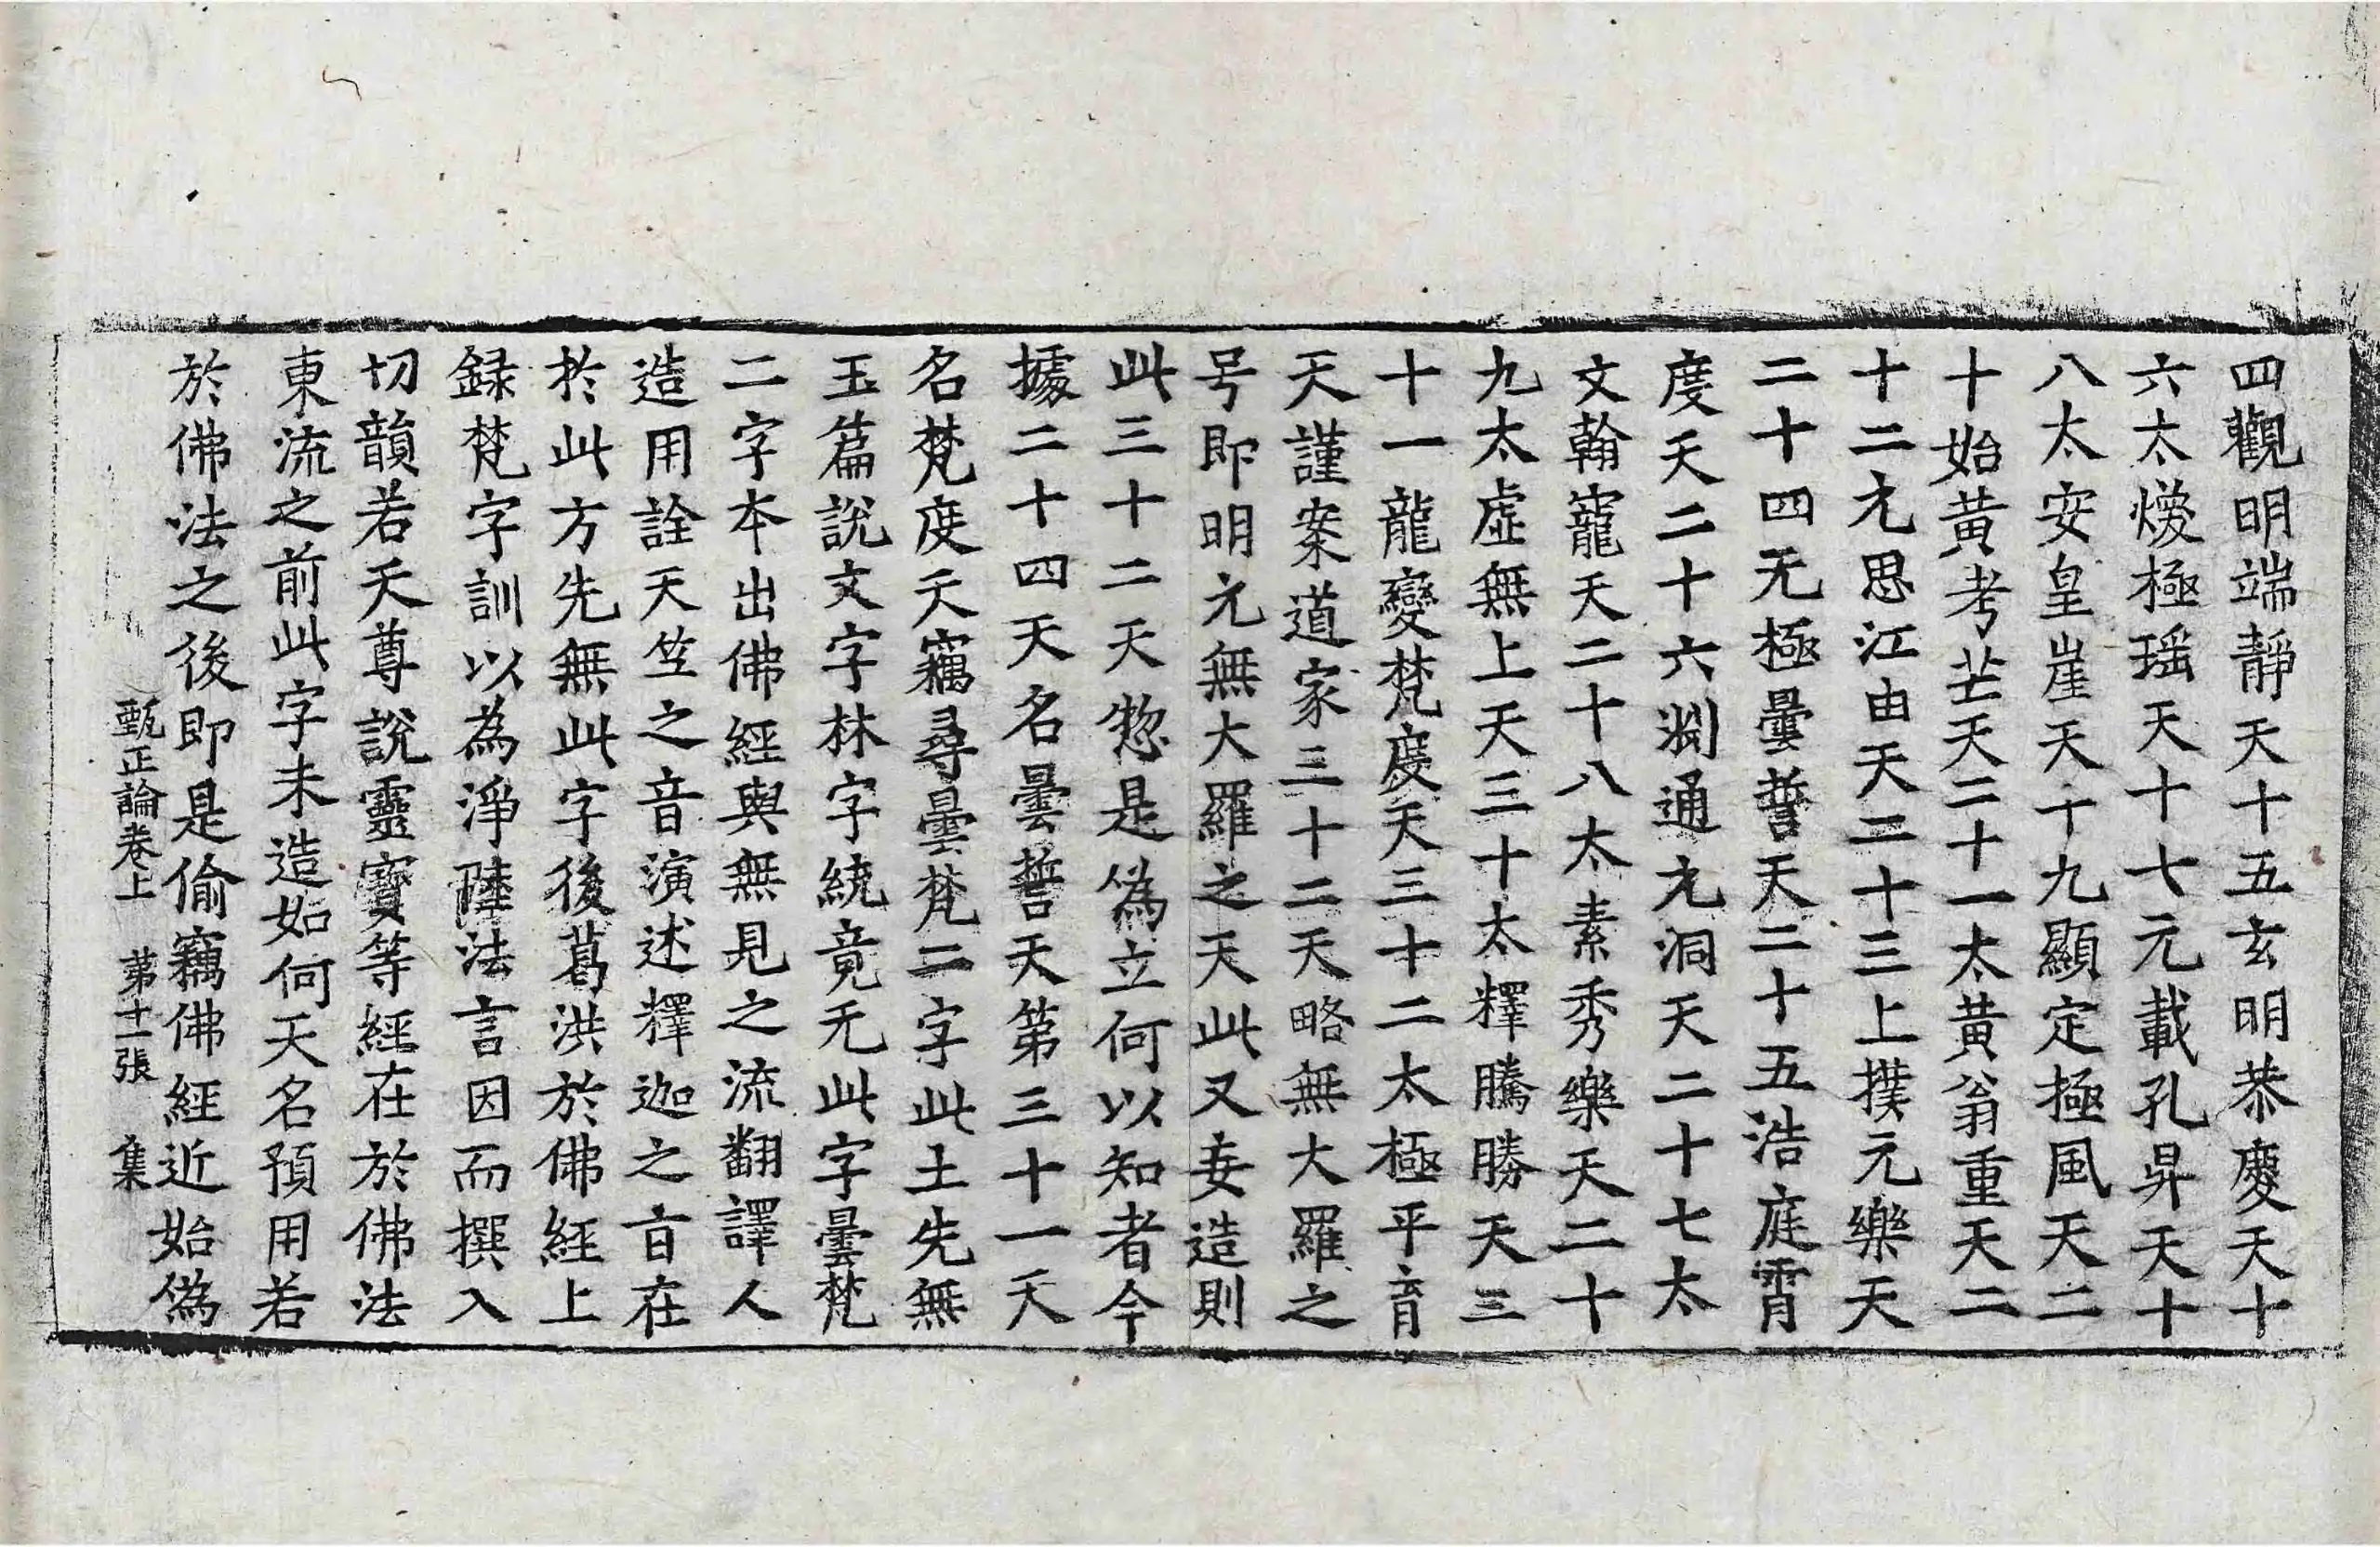 四觀明端靜天十五玄明恭慶天十
六太煥極瑶天十七元載孔昇天十
八太安皇崖天十九顯定極風天二
十始黃考芒天二十一太黃翁重天二
十二无思江由天二十三上撲元樂天
二十四无極曇誓天二十五浩庭霄
度天二十六渕通元洞天二十七太
文翰寵天二十八太素秀樂天二十
九太虛無上天三十太釋騰勝天三
十一龍變梵度天三十二太極平育
天謹案道家三十二天略無大羅之
号即明元無大羅之天此又妄造則
此三十二天惣是偽立何以知者今
據二十四天名曇誓天第三十一天
名梵度天竊尋曇梵二字此土先無
玉篇說文字林字統竟无此字曇梵
二字本出佛經與無見之流翻譯人
造用詮天竺之音演述釋迦之旨在
於此方先無此字後葛洪於佛經上
録梵字訓以為淨陸法言因而撰入
切韻若天尊說靈寶等經在於佛法
東流之前此字未造如何天名預用若
於佛法之後即是偷竊佛經近始偽
甄正論卷上 第十一張 集